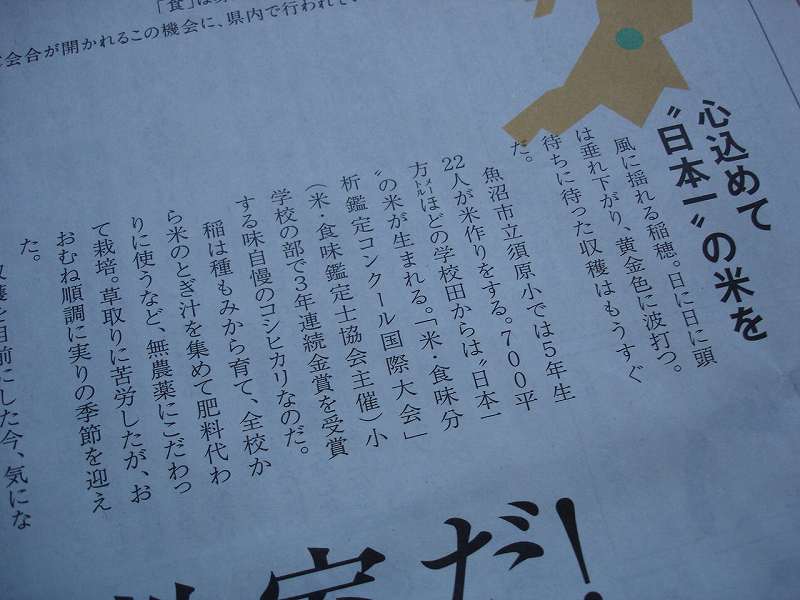 「食」は
会合が開かれるこの機会に、県内で行われてい
心込めて
〝日本一〟の米を
風に揺れる稲穂。日に日に頭
は垂れ下がり、黄金色に波打つ。
待ちに待った収穫はもうすぐ
だ。
魚沼市立須原小では5年生
22人が米作りをする。700平
方メートルほどの学校田からは〝日本一
〟の米が生まれる。「米・食味分
析鑑定コンクール国際大会」
(米・食味鑑定士協会主催)小
学校の部で3年連続金賞を受賞
する味自慢のコシヒカリなのだ。
稲は種もみから育て、全校か
ら米のとぎ汁を集めて肥料代わ
りに使うなど、無農薬にこだわっ
て栽培。草取りに苦労したが、お
おむね順調に実りの季節を迎え
た。
収穫を目前にした今、気にな
家だ!